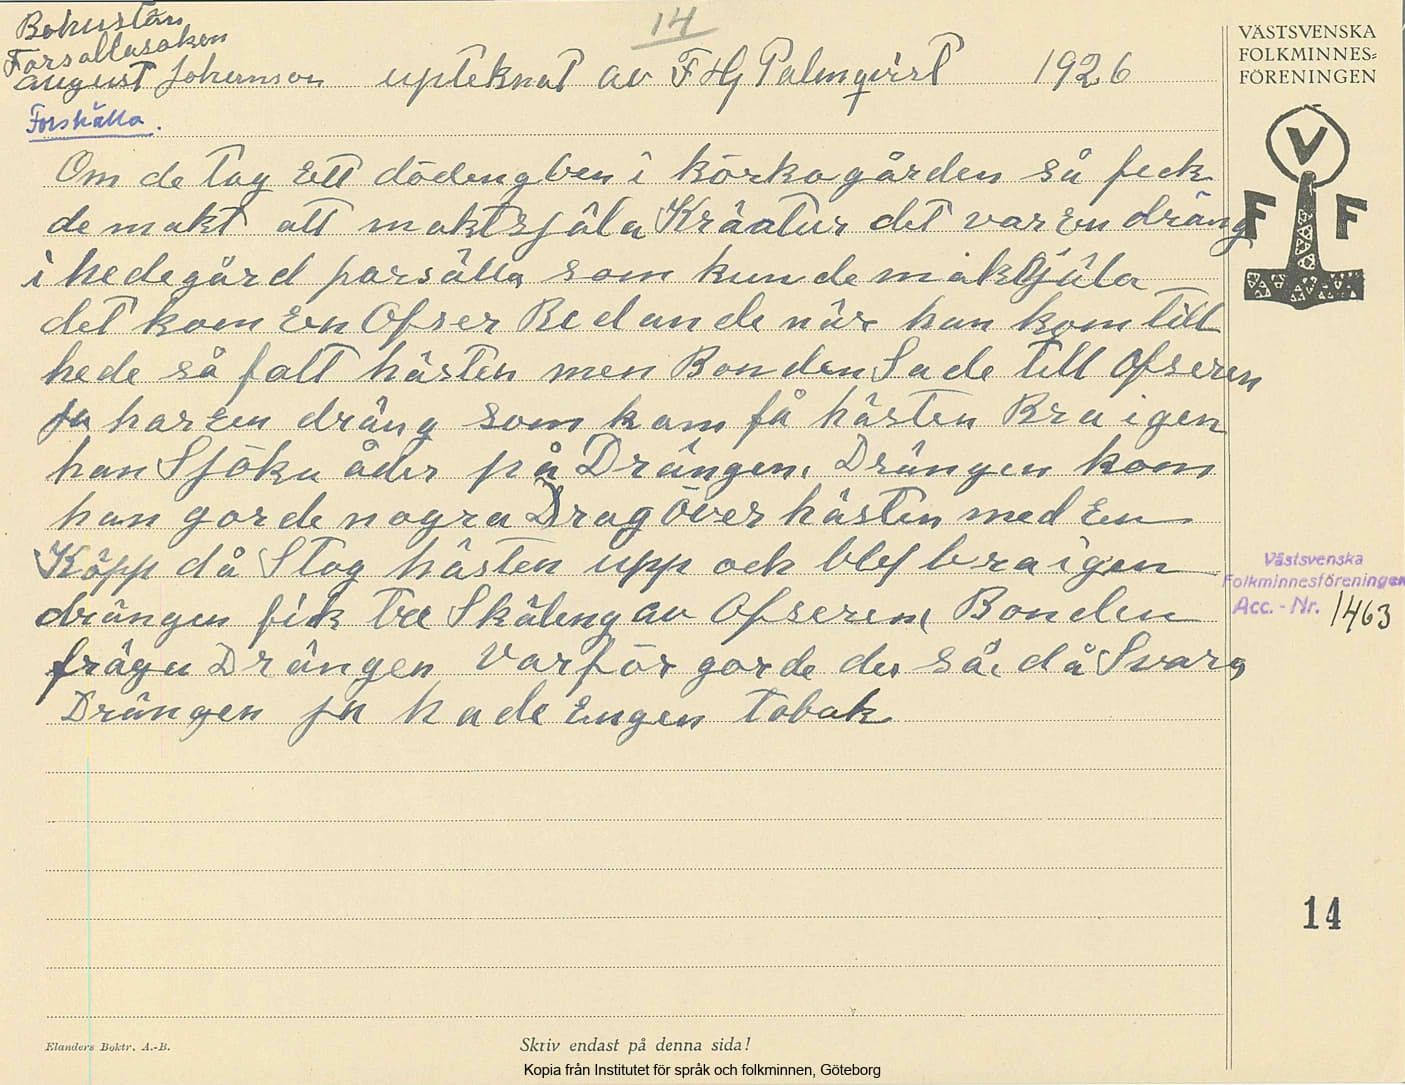 14
Bohuslän
Forsallasoken
August Johanson upteknat av F Hj Palmqvist 1926
Forshälla.
Om de tog Ett dödengben i körkogården så feck
de makt att maktstjäla Kräatur det var En dräng
i hedegård forsälla som kunde maktstjäla
det kom En Ofser Redande när han kom till
hede så falt hästen men Bonden Sade till Ofseren
ja har en dräng som kam få hästen Bra igen
han Sjöka åder på Drängen. Drängen kom
han gorde nogra Drag över hästen med En
Käpp då Stog hästen upp och blef bra igen
drängen fick tre Skäleng av Ofseren, Bonden
frågu Drängen varför gorde du så, då Svara
Drängen ja hade Engen tobak
VÄSTSVENSKA
FOLKMINNES=
FÖRENINGEN
V
F F
Västsvenska
Folkminnesföreningen
Acc.-Nr. 1463
14
Elanders Boktr. A.-B.
Skriv endast på denna sida!
Kopia från Institutet för språk och folkminnen, Göteborg